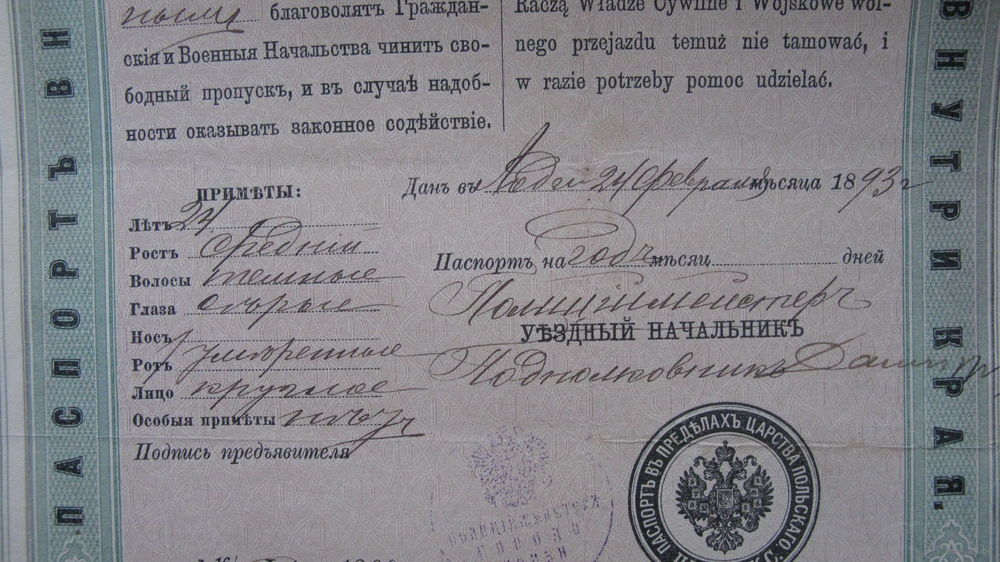 ными благоволятъ Граждан-
скія и Военныя Начальства чинить сво-
бодный пропускъ, и въ случаѣ надоб-
ности оказывать законное содѣйствіе.
Raczą Władze Cywilne i Wojskowe wol-
nego przejazdu temuż nie tamować, i
w razie potrzeby pomoc udzielać.
ПРИМѢТЫ:
Лѣтъ 24
Ростъ средній
Волосы темные
Глаза сѣрые
Носъ
Ротъ умѣренные
Лицо круглое
Особыя примѣты нѣтъ
Подпись предъявителя
Данъ въ 24 Февраля мѣсяца 1893 г
Паспортъ на годъ мѣсяц дней
Полиціймейстеръ
УѢЗДНЫЙ НАЧАЛЬНИКЪ
Подполковникъ
ПАСПОРТЪ ВЪ ПРЕДѢЛАХЪ ЦАРСТВА ПОЛЬСКАГО
ПАСПОРТЪ ВН
ВНУТРИ КРАЯ.